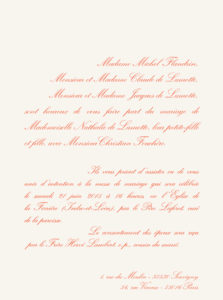 Madame Michel Flandrin,
Monsieur et Madame Claude de Lumette,
Monsieur et Madame Jacques de Lumette,
sont heureux de vous faire part du mariage de
Mademoiselle Nathalie de Lumette, leur petite-fille
et fille, avec Monsieur Christian Fouchère.
Ils vous prient d'assister ou de vous
unir d'intention à la messe de mariage qui sera célébrée
le samedi 21 juin 2015 à 16 heures, en l'Eglise de
la (Indre-et-Loire), par le Père Lefort, curé
de la paroisse.
Le consentement des époux sera reçu
par le Père Hervé s.j., cousin du marié.
2 rue du Moulin - 37320
54, rue Varenne - 75016 Paris